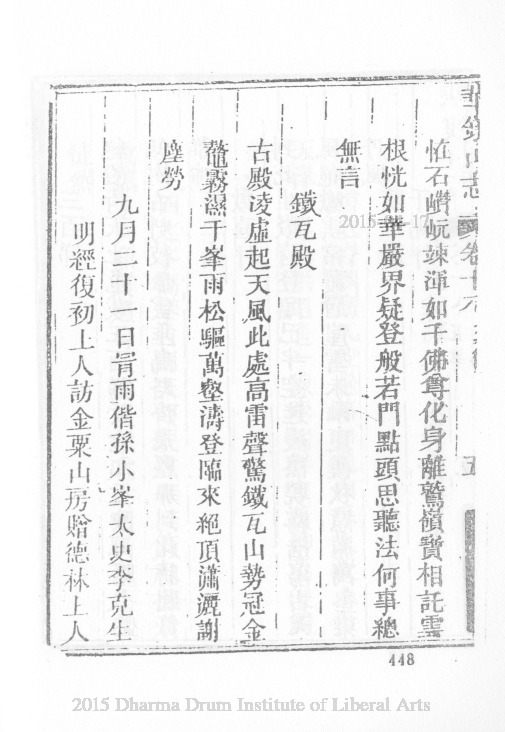 怪石巑岏竦渾如千佛尊化身離鷲嶺寶相託雲
根恍如華嚴界疑登般若門點頭思聽法何事總
無言
鐵瓦殿
古殿凌虛起天風此處高雷聲驚鐵瓦山勢冠金
鼇霧濕千峯雨松驅萬壑濤登臨來絕頂瀟灑謝
塵勞
九月二十 日冐雨偕孫小峯太史李克生
明經復初上人訪金粟山房贈德林上人
山志
卷十
五
448
2015 Dharma Drum Institute of Liberal Arts